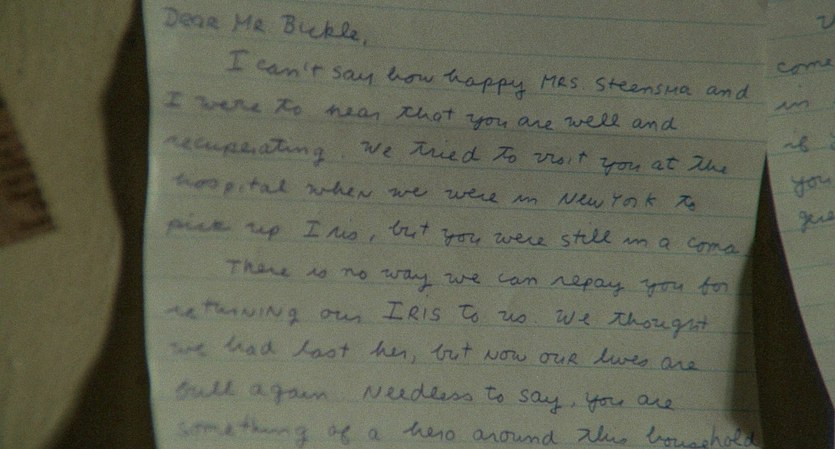 Dear Mr Bickle,
I can't say how happy MRS. Steensma and
I were to hear that you are well and
recuperating. We tried to visit you at the
hospital when we were in New York to
pick up Iris, but you were still in a coma
There is no way we can repay you for
returning our IRIS to us. We thought
we had lost her, but now our lives are
full again. Needless to say, you are
something of a hero around this household
come
in
you